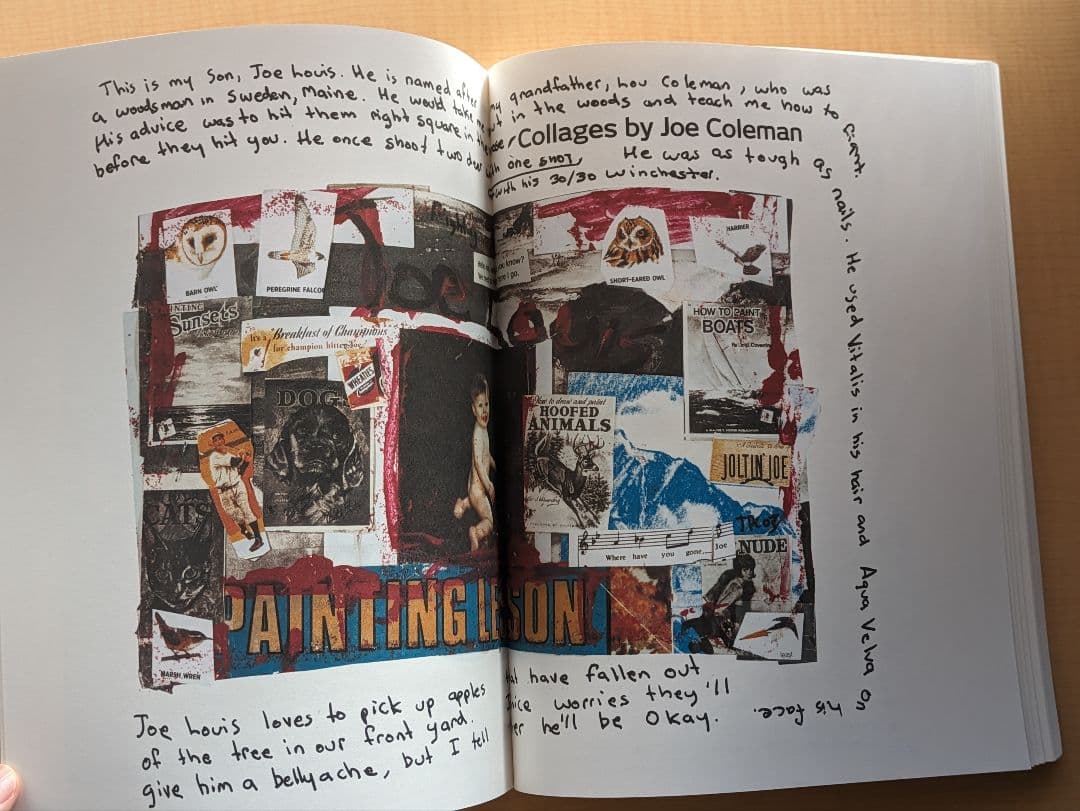 This is my Son, Joe Louis. He is named after my grandfather, Lou Coleman, who was
a woodsman in Sweden, Maine. He would take me out in the woods and teach me how to
His advice was to hit them right square in the
before they hit you. He once shoot two deer with one SHOT,
with his 30/30 Winchester.
He was as tough as nails. He used Vitalis in his hair and Aqua Velva on
his face.
Collages by Joe Coleman
BARN OWL
PEREGRINE FALCON
you know?
here i go.
SHORT-EARED OWL
HARRIER
Joe
Sunsets
It's a "Breakfast of Champions"
for champion hitter Joe!
WHEATIES
HOW TO PAINT
BOATS
DOGS
How to draw and paint
HOOFED
ANIMALS
JOLTIN' JOE
CATS
Where have you gone, Joe
NUDE
PAINTING LESSON
MARSH WREN
Joe Louis loves to pick up apples that have fallen out
of the tree in our front yard. worries they'll
give him a bellyache, but I tell her he'll be Okay.